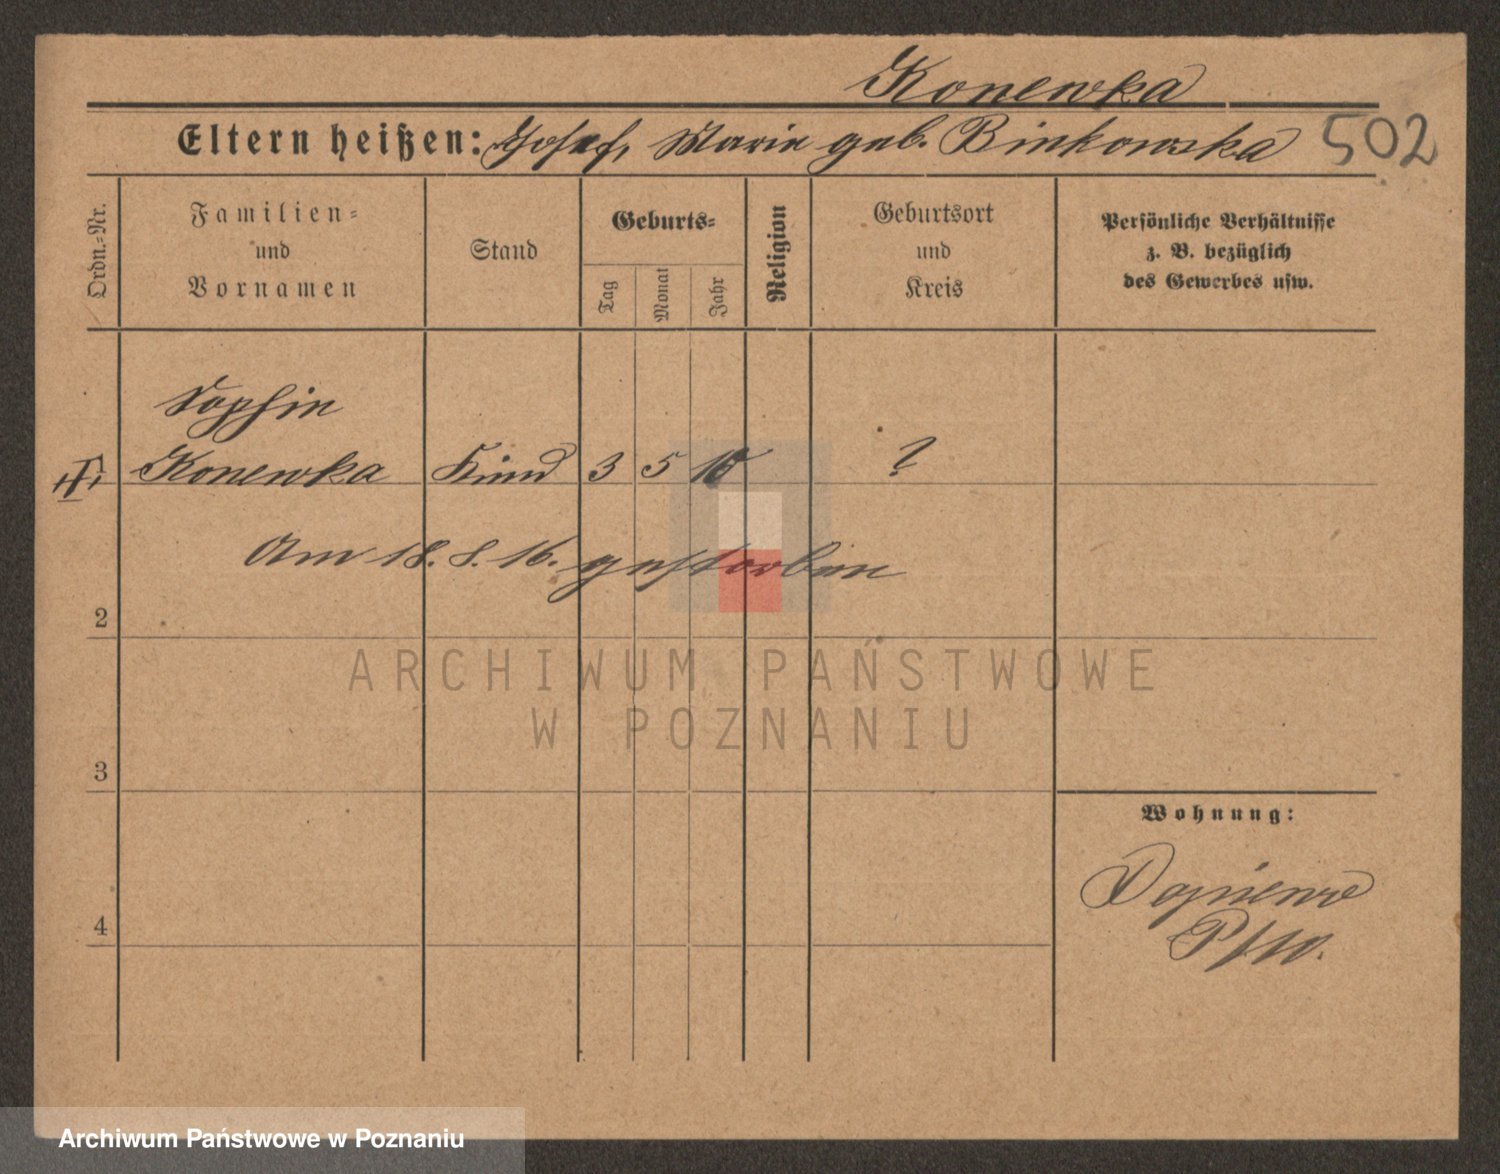 Konewka
Eltern heißen: Josef, Marie geb. Binkowska 502
Ordn.-Nr.
Familien-
und
Vornamen
Stand
Geburts-
Tag
Monat
Jahr
Religion
Geburtsort
und
Kreis
Persönliche Verhältnisse
z. B. bezüglich
des Gewerbes usw.
Sophie
Konewka Kind 3 5 16 ?
Am 18. 8. 16. gestorben
2
ARCHIWUM PAŃSTWOWE
W POZNANIU
3
Wohnung:
Dopiewo
4
Archiwum Państwowe w Poznaniu